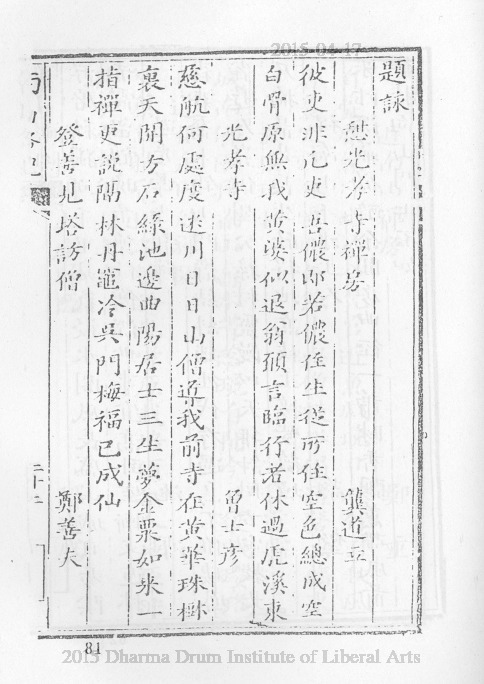 2015-04-17
題詠
憇光孝寺禪房 龔道立
彼吏非凡吏吾儂即若儂住生從所住空色總成空
白骨原無我黃婆似退翁預言臨行者休過虎溪東
光孝寺 曾士彥
慈航何處度迷川日日山僧導我前寺在黃華珠樹
裏天開方石綠池邊曲陽居士三生夢金粟如來一
指禪更說隔林丹竈冷吳門梅福已成仙
登善見塔訪僧 鄭善夫
二十二
84
2015 Dharma Drum Institute of Liberal Arts